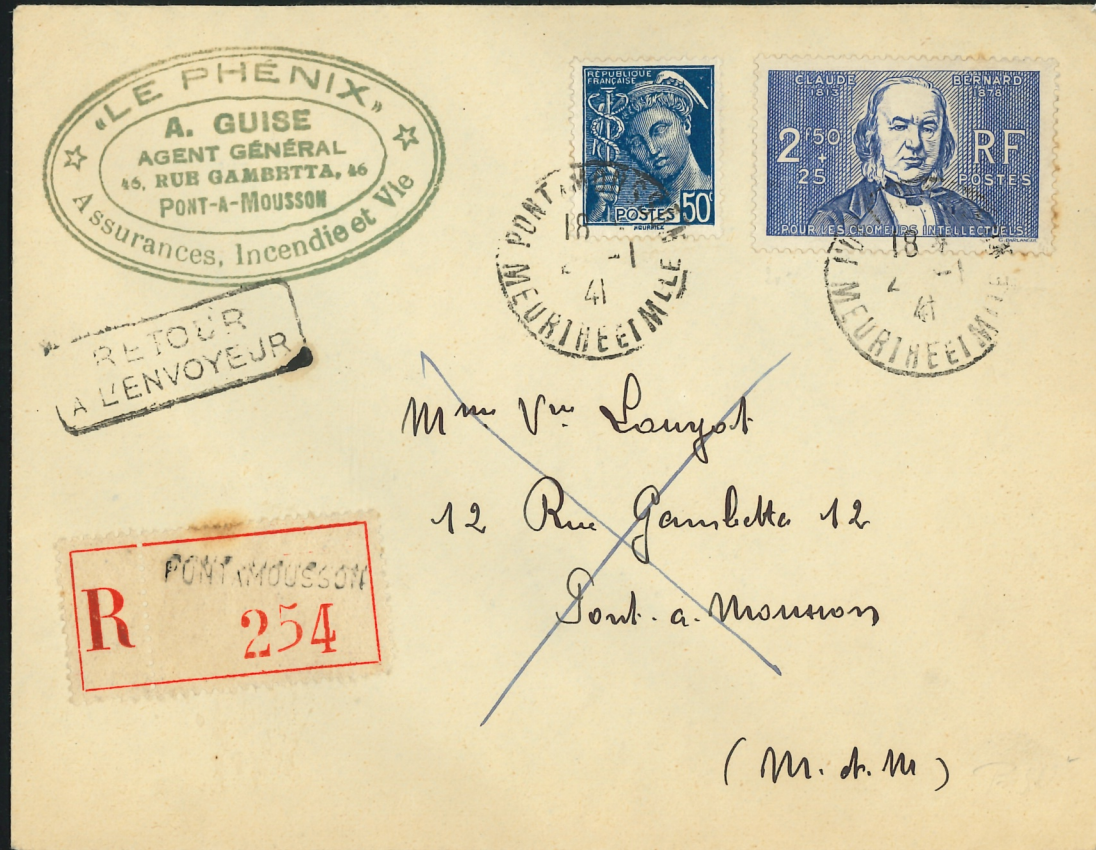 «LE PHÉNIX»
A. GUISE
AGENT GÉNÉRAL
46, RUE GAMBETTA, 46
PONT-A-MOUSSON
Assurances, Incendie et Vie
RÉPUBLIQUE
FRANÇAISE
POSTES 50c
CLAUDE BERNARD
1813 1878
2f50 RF
+
25 POSTES
POUR LES CHOMEURS INTELLECTUELS
PONT-A-MOUSSON
18
2 -1
41
MEURTHE ET MLLE
18
2 -1
41
MEURTHE ET MLLE
RETOUR
A L'ENVOYEUR
Mme Vve
12 Rue Gambetta 12
Pont-à-Mousson
(M.&.M)
R PONT-A-MOUSSON
254